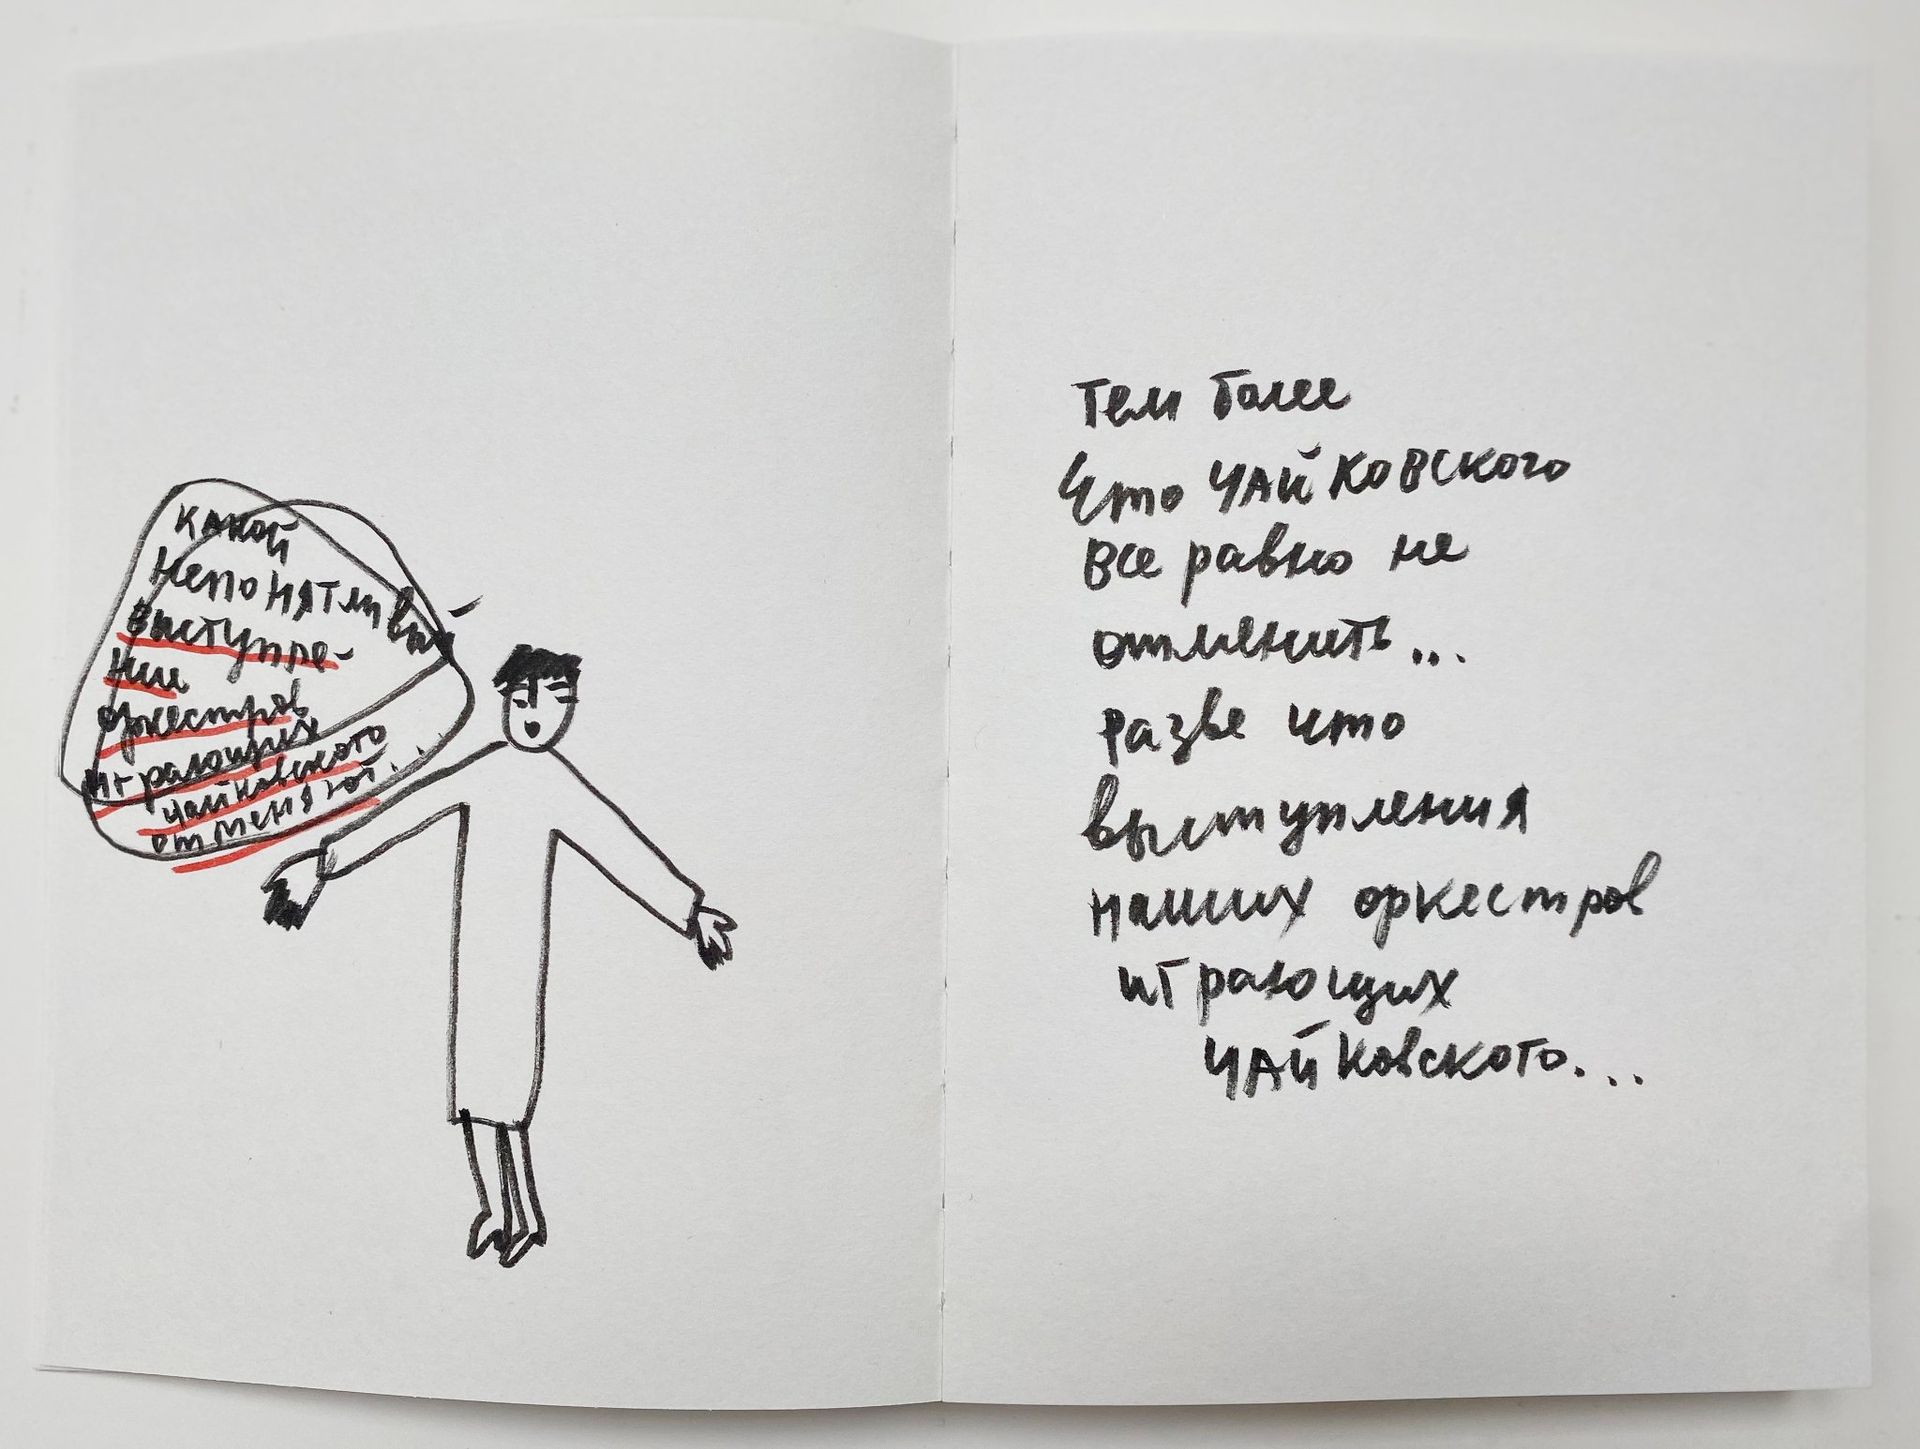 какой
непонятливый
выступле-
нии
оркестров
играющих
чайковского
отменяют...
тем более
что ЧАЙКОВСКОГО
все равно не
отменить...
разве что
выступления
наших оркестров
играющих
ЧАЙКовского...